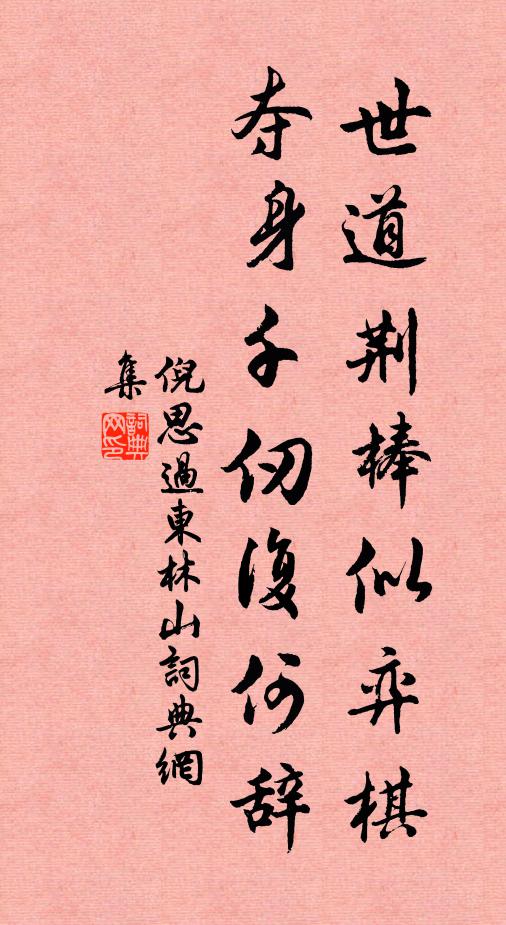 世道荆棒似弈棋
夺身千仞復何辞
倪思過東林山詞典網
集
詞典
网印